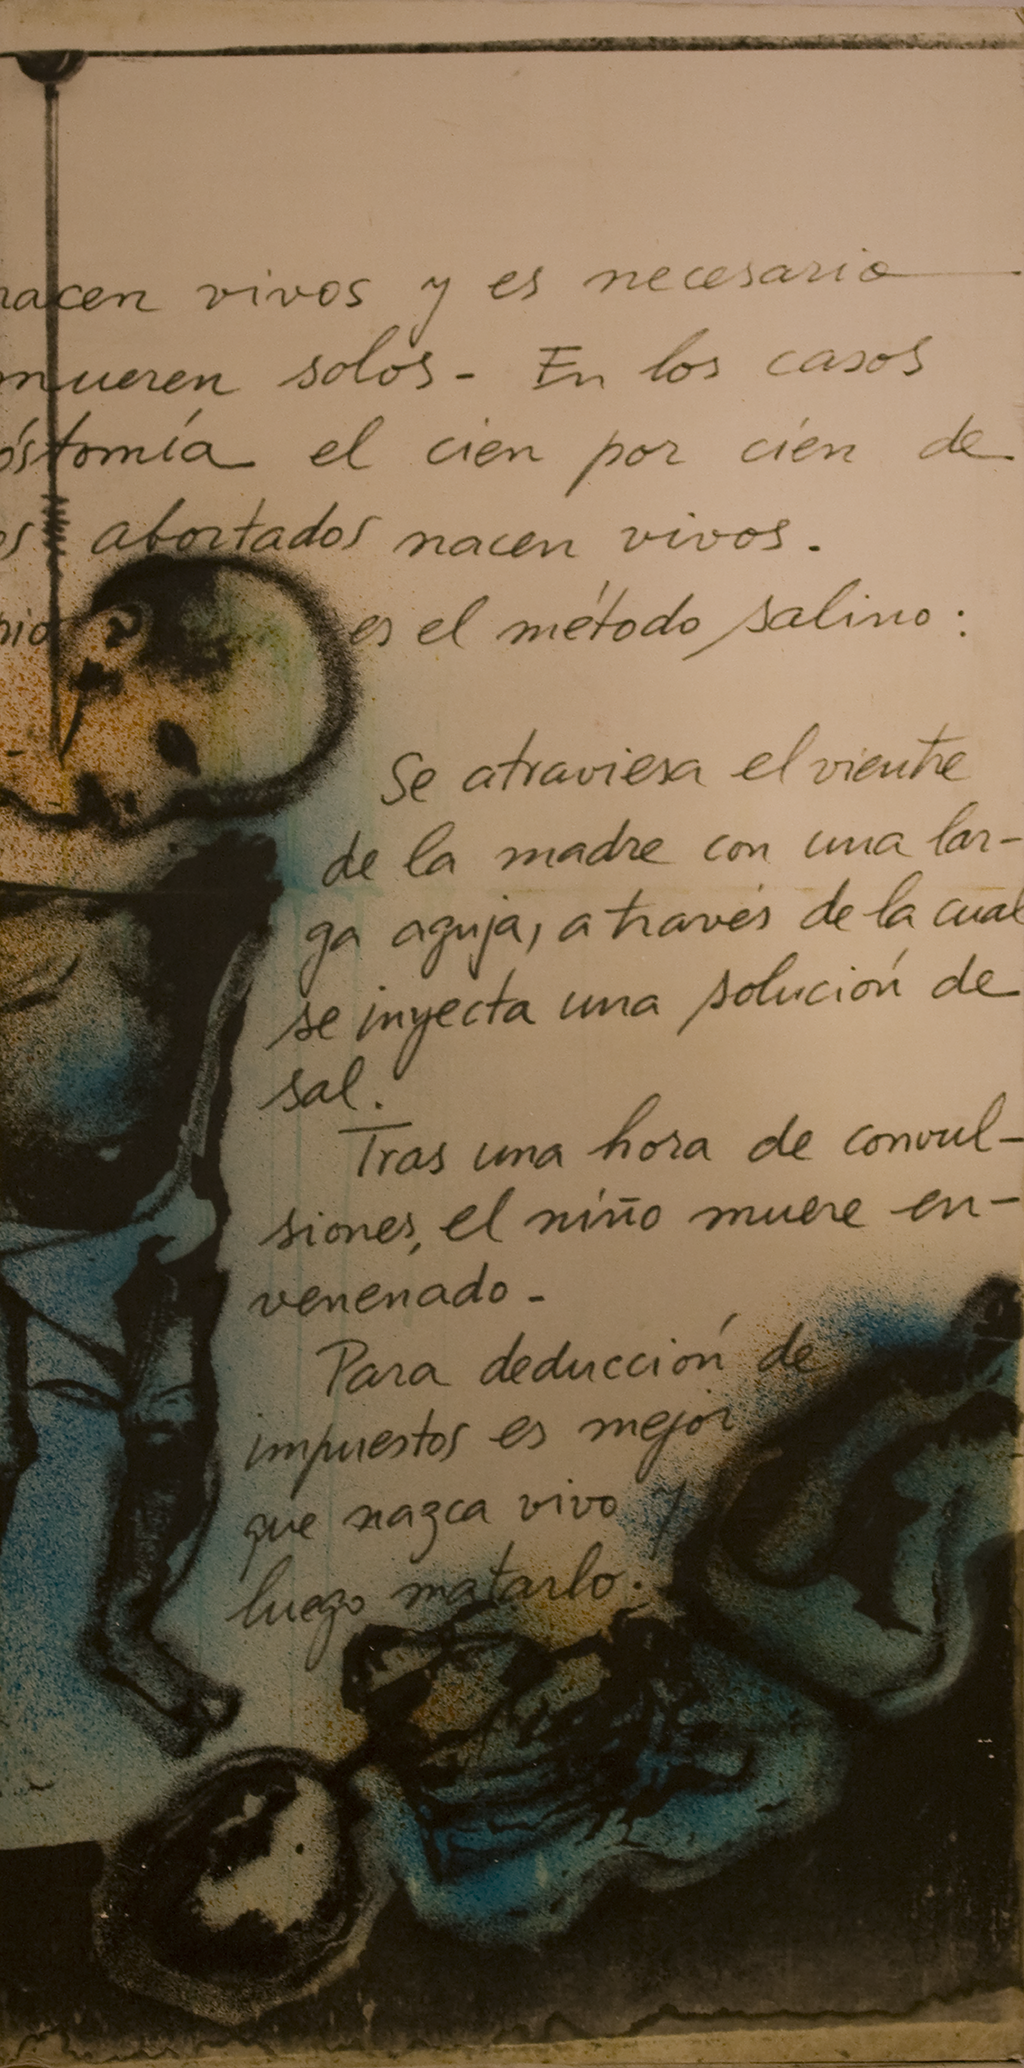 nacen vivos y es necesario
mueren solos - En los casos
óstomía el cien por cien de
os abortados nacen vivos.
es el método salino:
Se atraviesa el vientre
de la madre con una lar-
ga aguja, a través de la cual
se inyecta una solución de
sal.
Tras una hora de convul-
siones, el niño muere en-
venenado -
Para deducción de
impuestos es mejor
que nazca vivo y
luego matarlo.